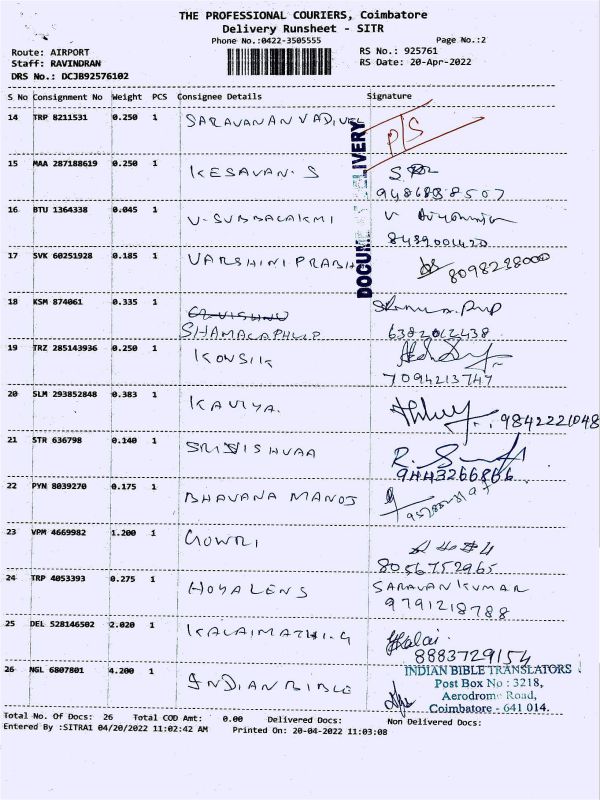 THE PROFESSIONAL COURIERS, Coimbatore
Delivery Runsheet - SITR
Phone No.:0422-3505555 Page No.:2
Route: AIRPORT RS No.: 925761
Staff: RAVINDRAN RS Date: 20-Apr-2022
DRS No.: DCJB92576102
S No Consignment No Weight PCS Consignee Details Signature
14 TRP 8211531 0.250 1 SARAVANAN VADIVEL P/S
15 MAA 287188619 0.250 1 KESAVAN. S
9486838507
16 BTU 1364338 0.045 1 V. SUBBALAKMI V
8439001420
17 SVK 60251928 0.185 1 VARSHINI PRABH 8098238000
DOCUM DELIVERY
18 KSM 874061 0.335 1
SHAMALA PHILIP 6382012438
19 TRZ 285143936 0.250 1 KOWSIK
7094213747
20 SLM 293852848 0.383 1 KAVIYA. 9842221048
21 STR 636798 0.140 1 SRIVISHVAA R.
9443266866
22 PYN 8039270 0.175 1 BHAVANA MANOJ
23 VPM 4669982 1.200 1 GOWRI
8056752965
24 TRP 4053393 0.275 1 HOYALENS SARAVANKUMAR
9791218788
25 DEL 528146502 2.020 1 KALAIMATHI. G Kalai.
8883729154
26 NGL 6807801 4.200 1 INDIAN BIBLE
INDIAN BIBLE TRANSLATORS
Post Box No : 3218,
Aerodrome Road,
Coimbatore - 641 014.
Total No. Of Docs: 26 Total COD Amt: 0.00 Delivered Docs: Non Delivered Docs:
Entered By :SITRA1 04/20/2022 11:02:42 AM Printed On: 20-04-2022 11:03:08